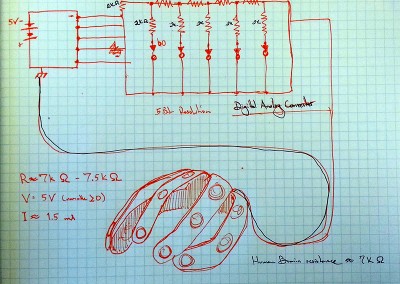 5V
2KΩ
2KΩ
b0
5 Bit Resolution
Digital Analog Converter
R ≈ 7k Ω - 7.5k Ω
V = 5V
I ≈ 1.5 mA
Human Brain resistance ≈ 7KΩ